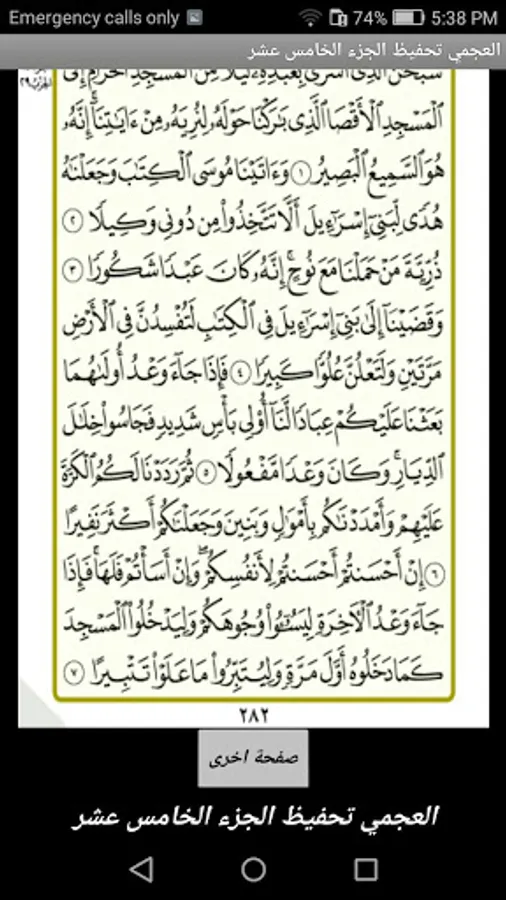 Emergency calls only 74% 5:38 PM
العجمي تحفيظ الجزء الخامس عشر
سُبْحَٰنَ ٱلَّذِىٓ أَسْرَىٰ بِعَبْدِهِۦ لَيْلًا مِّنَ ٱلْمَسْجِدِ ٱلْحَرَامِ إِلَى
ٱلْمَسْجِدِ ٱلْأَقْصَا ٱلَّذِى بَٰرَكْنَا حَوْلَهُۥ لِنُرِيَهُۥ مِنْ ءَايَٰتِنَآ ۚ إِنَّهُۥ
هُوَ ٱلسَّمِيعُ ٱلْبَصِيرُ ١ وَءَاتَيْنَا مُوسَى ٱلْكِتَٰبَ وَجَعَلْنَٰهُ
هُدًى لِّبَنِىٓ إِسْرَٰٓءِيلَ أَلَّا تَتَّخِذُوا۟ مِن دُونِى وَكِيلًا ٢
ذُرِّيَّةَ مَنْ حَمَلْنَا مَعَ نُوحٍ ۚ إِنَّهُۥ كَانَ عَبْدًا شَكُورًا ٣
وَقَضَيْنَآ إِلَىٰ بَنِىٓ إِسْرَٰٓءِيلَ فِى ٱلْكِتَٰبِ لَتُفْسِدُنَّ فِى ٱلْأَرْضِ
مَرَّتَيْنِ وَلَتَعْلُنَّ عُلُوًّا كَبِيرًا ٤ فَإِذَا جَآءَ وَعْدُ أُولَىٰهُمَا
بَعَثْنَا عَلَيْكُمْ عِبَادًا لَّنَآ أُو۟لِى بَأْسٍ شَدِيدٍ فَجَاسُوا۟ خِلَٰلَ
ٱلدِّيَارِ ۚ وَكَانَ وَعْدًا مَّفْعُولًا ٥ ثُمَّ رَدَدْنَا لَكُمُ ٱلْكَرَّةَ
عَلَيْهِمْ وَأَمْدَدْنَٰكُم بِأَمْوَٰلٍ وَبَنِينَ وَجَعَلْنَٰكُمْ أَكْثَرَ نَفِيرًا
٦ إِنْ أَحْسَنتُمْ أَحْسَنتُمْ لِأَنفُسِكُمْ ۖ وَإِنْ أَسَأْتُمْ فَلَهَا ۚ فَإِذَا
جَآءَ وَعْدُ ٱلْءَاخِرَةِ لِيَسُۥٓـُٔوا۟ وُجُوهَكُمْ وَلِيَدْخُلُوا۟ ٱلْمَسْجِدَ
كَمَا دَخَلُوهُ أَوَّلَ مَرَّةٍ وَلِيُتَبِّرُوا۟ مَا عَلَوْا۟ تَتْبِيرًا ٧
٢٨٢
صفحة اخرى
العجمي تحفيظ الجزء الخامس عشر